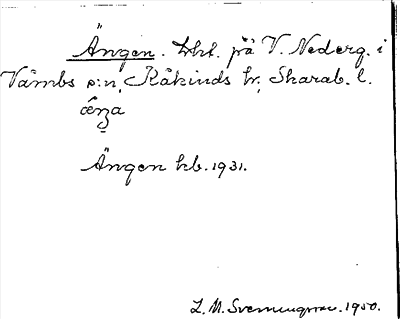 Ängen. Lht. på V. Nederg. i
Vämbs s:n, Kåkinds hr, Skarab. l.
äŋa
Ängen kb. 1931.
L. M. Svenungsson. 1950.